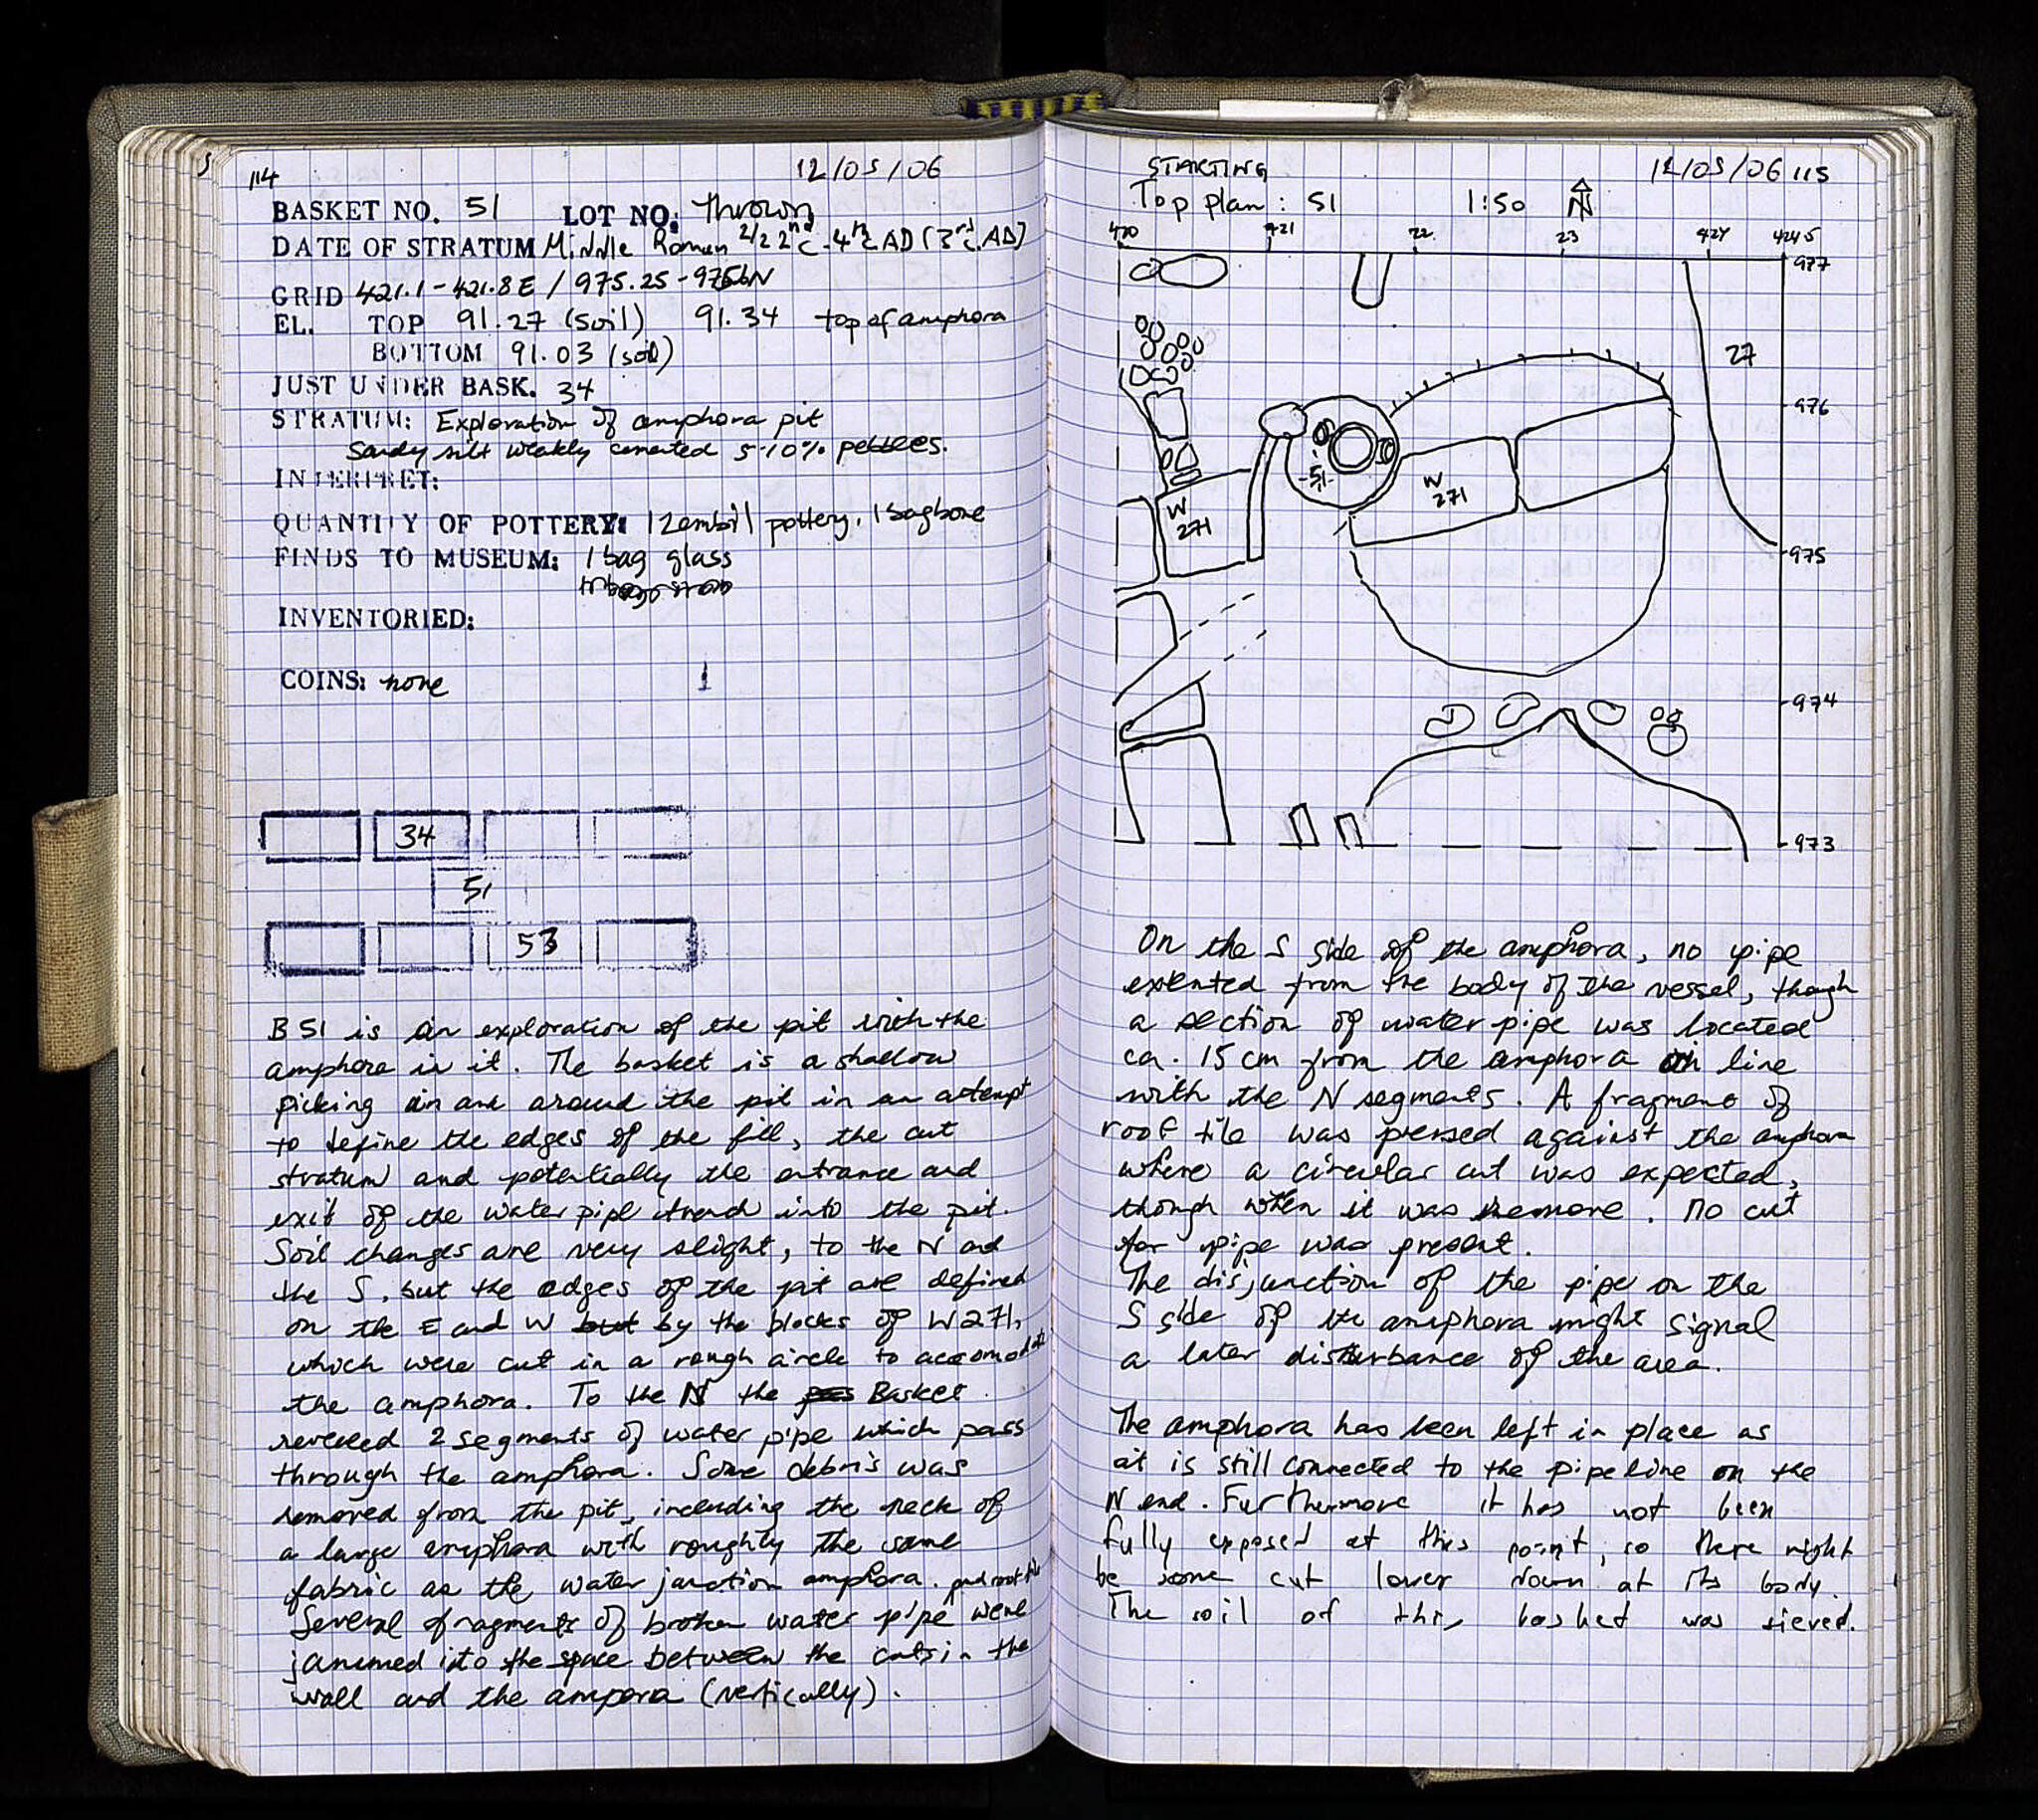 114
12/05/06
BASKET NO. 51 LOT NO: Thrown
DATE OF STRATUM Middle Roman 2/2 2nd c - 4th c AD (3rd c. AD)
GRID 421.1-421.8E / 975.25-976N
EL. TOP 91.27 (soil) 91.34 top of amphora
BOTTOM 91.03 (soil)
JUST UNDER BASK. 34
STRATUM: Exploration of amphora pit
Sandy silt weakly cemented 5-10% pebbles.
INTERPRET:
QUANTITY OF POTTERY: 1 zembil pottery, 1 bag bone
FINDS TO MUSEUM: 1 bag glass
INVENTORIED:
COINS: none
1
34
51
53
B51 is an exploration of the pit with the
amphora in it. The basket is a shallow
picking in and around the pit in an attempt
to define the edges of the fill, the cut
stratum and potentially the entrance and
exit of the water pipe into the pit.
Soil changes are very slight, to the N and
the S, but the edges of the pit are defined
on the E and W but by the blocks of W271,
which were cut in a rough circle to accomodate
the amphora. To the N the Basket
reveeed 2 segments of water pipe which pass
through the amphora. Some debris was
removed from the pit, including the neck of
a large amphora with roughly the same
fabric as the water junction amphora.
Several fragments of broken water pipe and roof tile were
jammed into the space between the cuts in the
wall and the ampora (vertically).
STARTING
12/05/06 115
Top plan: 51 1:50 N
420 421 22 23 424 424.5
977
27
976
51
W
271
W
271
975
974
973
On the S side of the amphora, no pipe
extented from the body of the vessel, though
a section of water pipe was located
ca. 15 cm from the amphora in line
with the N segments. A fragment of
roof tile was pressed against the amphora
where a circular cut was expected,
though when it was remove. no cut
for pipe was present.
The disjunction of the pipe on the
S side of the amphora might signal
a later disturbance of the area.
The amphora has been left in place as
it is still connected to the pipeline on the
N end. Furthermore it has not been
fully exposed at this point, so there might
be some cut lower down at its body.
The soil of this basket was sieved.